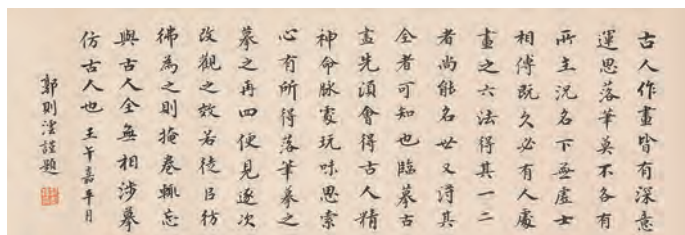 古人作畫皆有深意
運思落筆莫不各有
所主況名下無虛士
相傳既久必有人處
畫之六法得其一二
者尚能名世又得其
全者可知也臨摹古
畫先須會得古人精
神命脈處玩味思索
心有所得落筆摹之
摹之再四便見逐次
改觀之效若徒以彷
彿為之則掩卷輒忘
與古人全無相涉摹
仿古人也 壬午嘉平月
郭則澐謹題